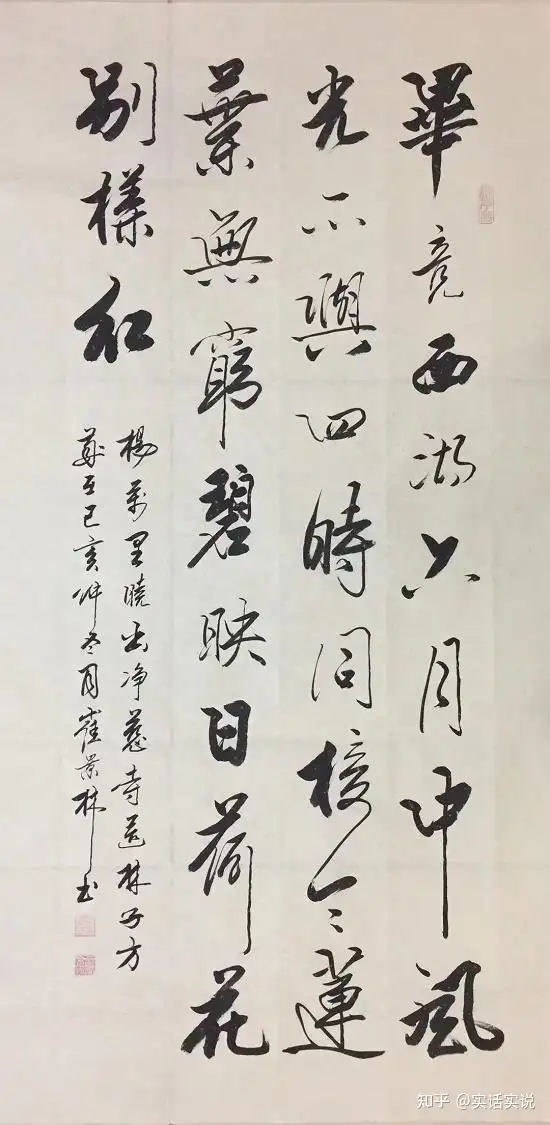 畢竟西湖六月中風
光不與四時同接天蓮
葉無窮碧映日荷花
別樣紅
楊萬里曉出净慈寺送林子方
歲在己亥仲冬月崔景林书
知乎 @实话实说